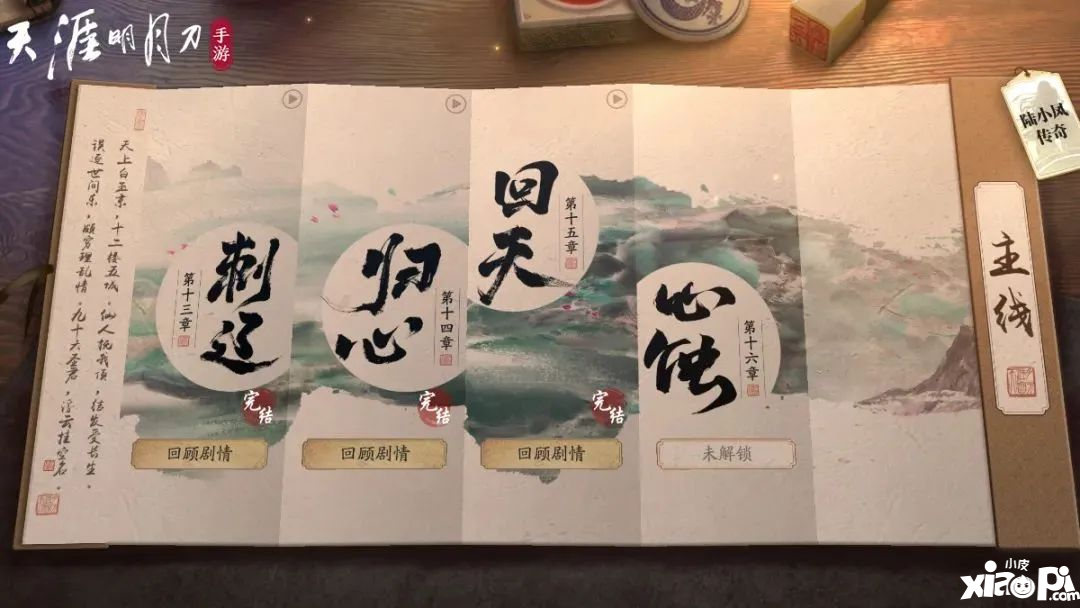 天涯明月刀
手游
陆小凤
传奇
主线
天上白玉京，十二楼五城，仙人抚我顶，结发受长生，
误逐世间乐，颇穷理乱情，九十六圣君，浮云挂空名。
第十三章
刺辽
完结
回顾剧情
第十四章
归心
完结
回顾剧情
第十五章
回天
完结
回顾剧情
第十六章
心蚀
未解锁
小皮
xiaopi.com